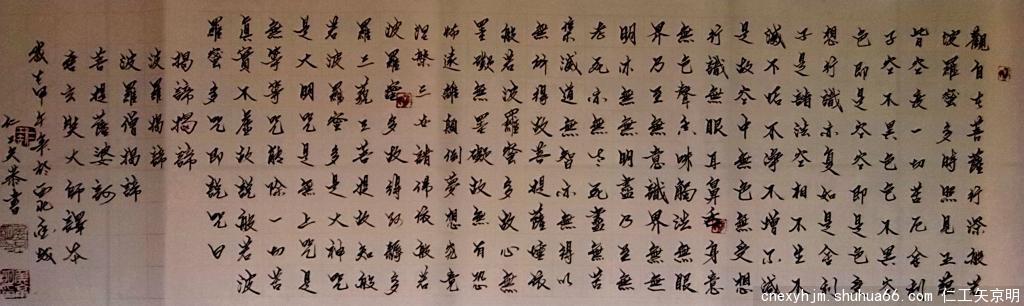 觀自在菩薩行深般若
波羅蜜多時照見五蘊
皆空度一切苦厄舍利
子色不異空空不異色
色即是空空即是色受
想行識亦復如是舍利
子是諸法空相不生不
滅不垢不淨不增不減
是故空中無色無受想
行識無眼耳鼻舌身意
無色聲香味觸法無眼
界乃至無意識界無無
明亦無無明盡乃至無
老死亦無老死盡無苦
集滅道無智亦無得以
無所得故菩提薩埵依
般若波羅蜜多故心無
罣礙無罣礙故無有恐
怖遠離顛倒夢想究竟
涅槃三世諸佛依般若
波羅蜜多故得阿耨多
羅三藐三菩提故知般
若波羅蜜多是大神咒
是大明咒是無上咒是
無等等咒能除一切苦
真實不虛故說般若波
羅蜜多咒即說咒曰
揭諦揭諦
波羅揭諦
波羅僧揭諦
菩提薩婆訶
唐玄奘大師譯本
歲在甲午年於
仁工矢恭書
cnexyhjm.shuhua66.com 仁工矢京明